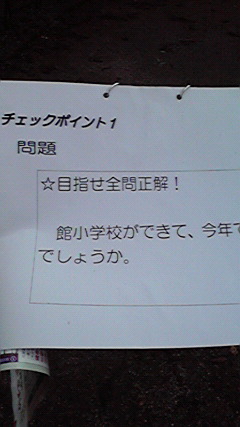 チェックポイント1
問題
☆目指せ全問正解！
館小学校ができて、今年で
でしょうか。